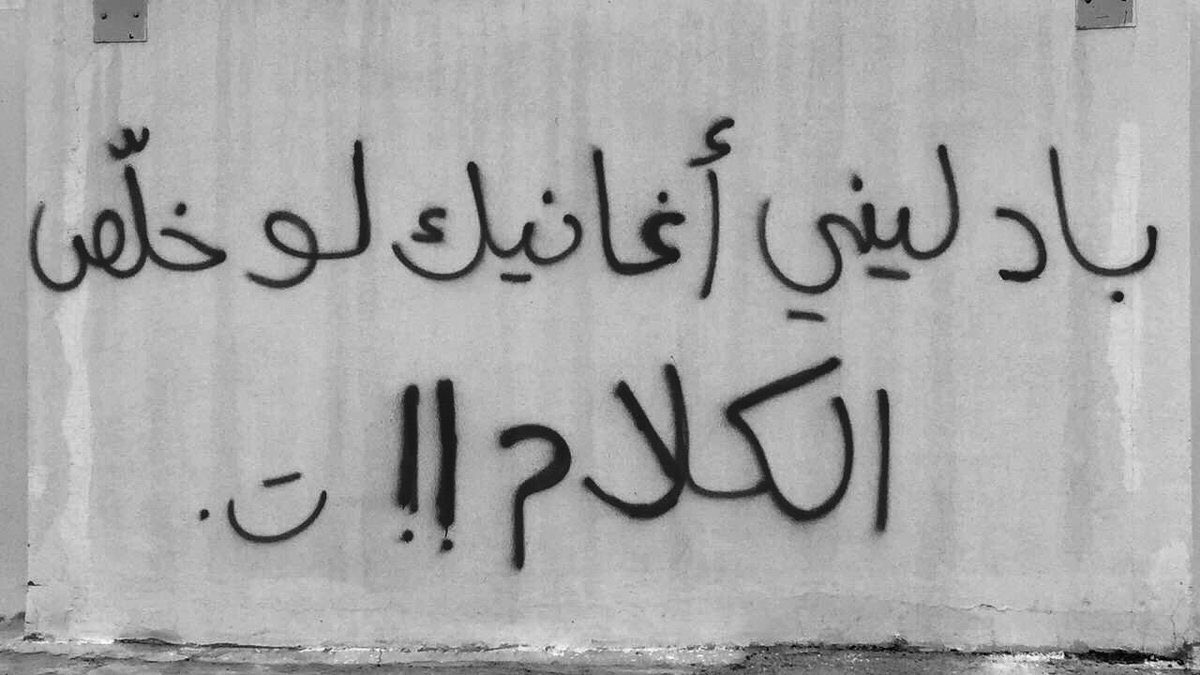 بادليني أغانيك لو خلّص
الكلام!! ت.